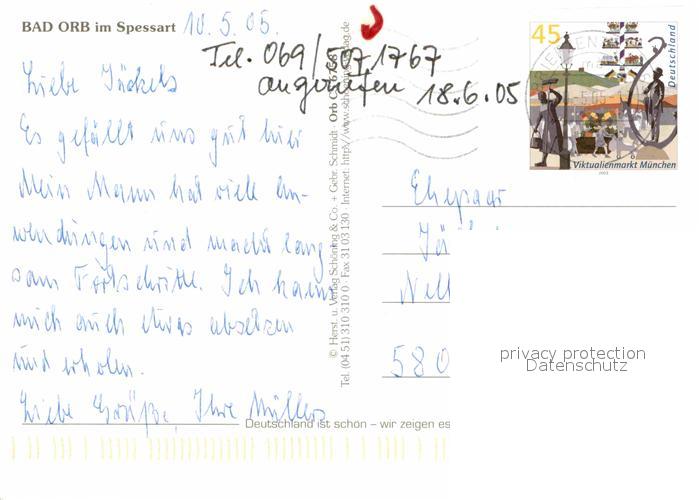 BAD ORB im Spessart 10.5.05.
Tel. 069/5071767
angerufen 18.6.05
Liebe Jäckels
Es gefällt uns gut hier
Mein Mann hat viele An-
wendungen und macht lang
sam Fortschritte. Ich kann
mich auch etwas absetzen
und erholen.
Liebe Grüße, Ihre Müllers
© Herst. u. Verlag Schöning & Co. + Gebr. Schmidt · Orb
Tel. (04 51) 310 310 0 · Fax 31 03 130 · Internet: http://www.
45
Deutschland
Viktualienmarkt München
2003
Ehepaar
Jä
Nell
580
privacy protection
Datenschutz
Deutschland ist schön – wir zeigen es